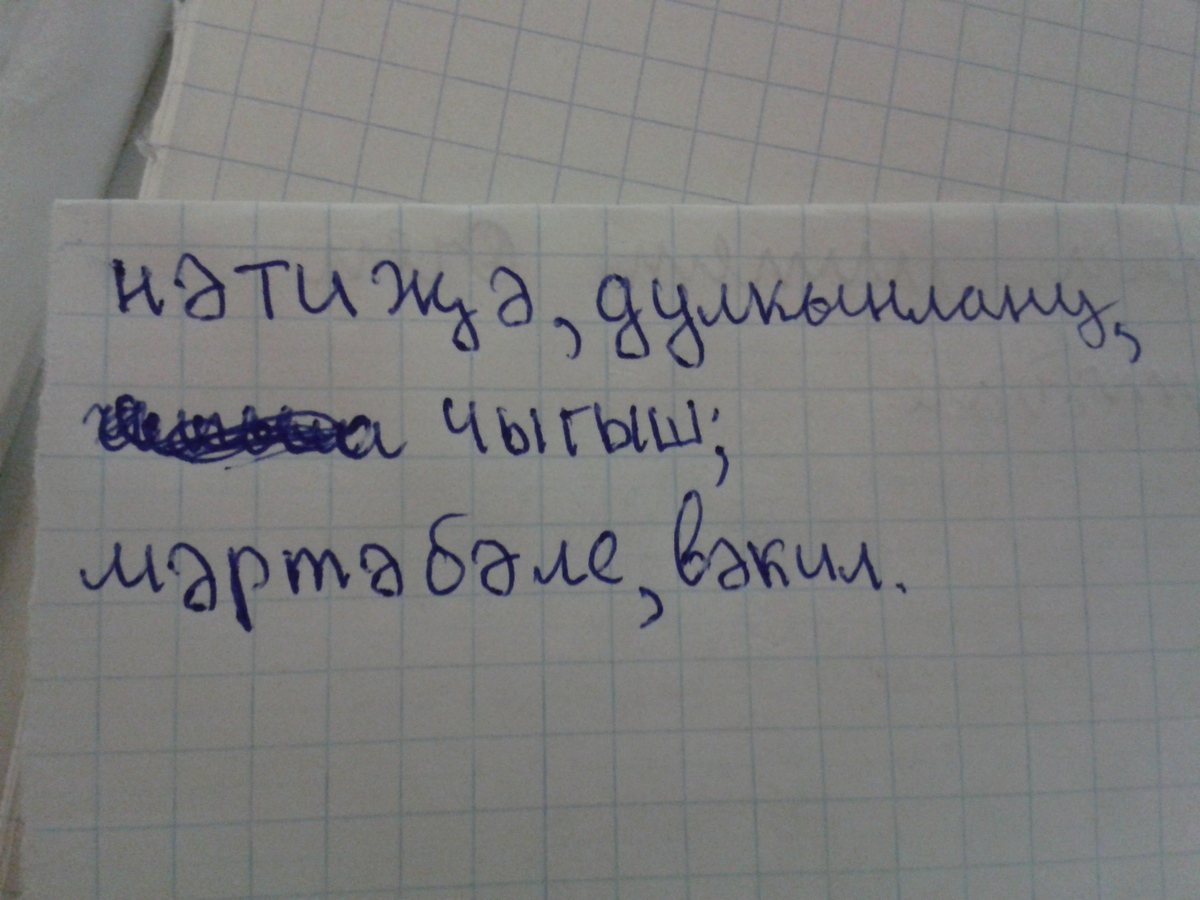 нәтиҗә, дулкынлану,
чыгыш;
мәртәбәле, вәкил.